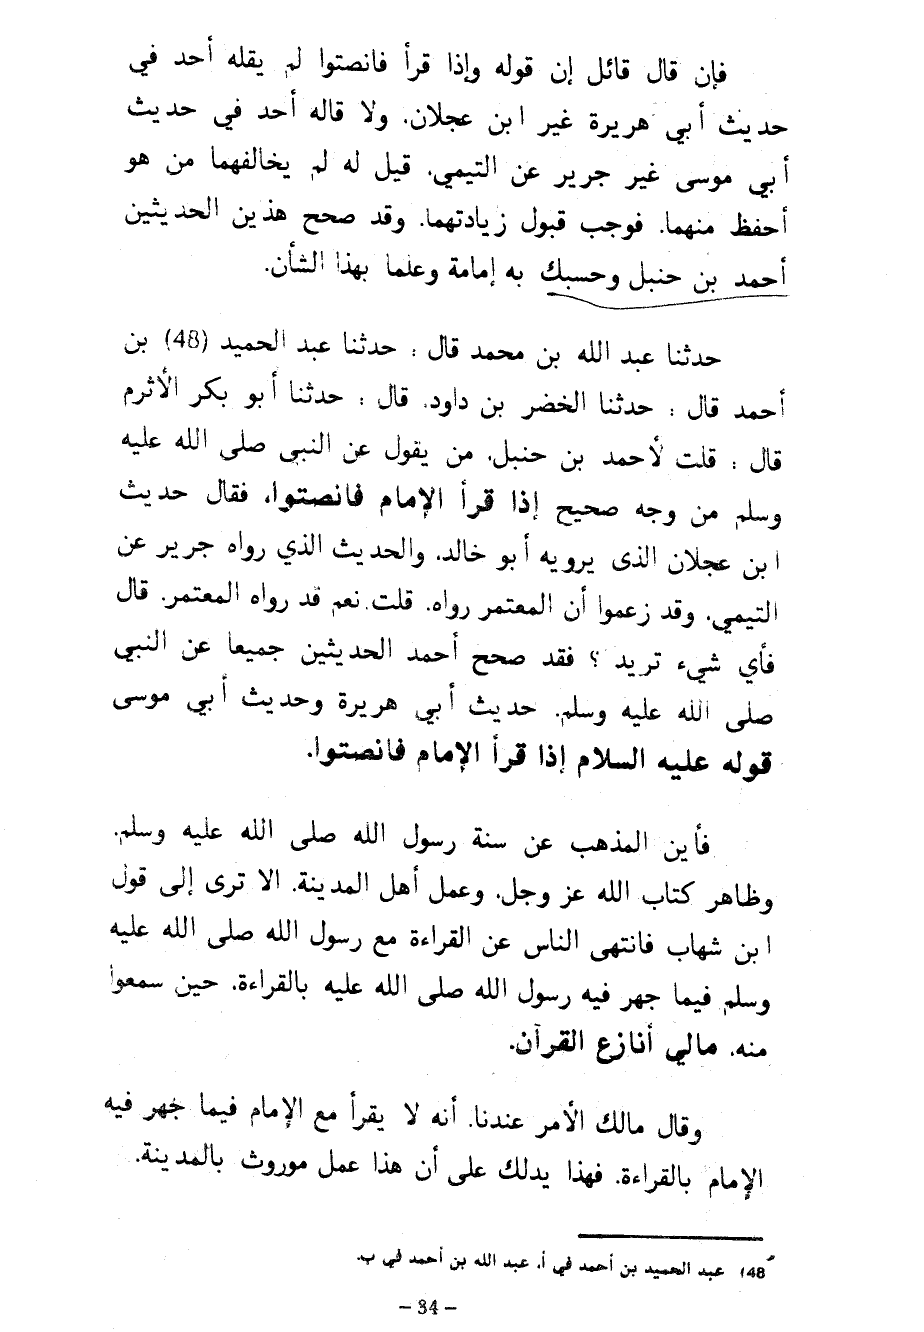 فإن قال قائل إن قوله وإذا قرأ فانصتوا لم يقله أحد في
حديث أبي هريرة غير ابن عجلان. ولا قاله أحد في حديث
أبي موسى غير جرير عن التيمي. قيل له لم يخالفهما من هو
أحفظ منهما. فوجب قبول زيادتهما. وقد صحح هذين الحديثين
أحمد بن حنبل وحسبك به إمامة وعلما بهذا الشأن.
حدثنا عبد الله بن محمد قال : حدثنا عبد الحميد (48) بن
أحمد قال : حدثنا الخضر بن داود. قال : حدثنا أبو بكر الأثرم
قال : قلت لأحمد بن حنبل. من يقول عن النبي صلى الله عليه
وسلم من وجه صحيح إذا قرأ الإمام فانصتوا. فقال حديث
ابن عجلان الذى يرويه أبو خالد. والحديث الذي رواه جرير عن
التيمي. وقد زعموا أن المعتمر رواه. قلت نعم قد رواه المعتمر. قال
فأي شيء تريد ؟ فقد صحح أحمد الحديثين جميعا عن النبي
صلى الله عليه وسلم. حديث أبي هريرة وحديث أبي موسى
قوله عليه السلام إذا قرأ الإمام فانصتوا.
فأين المذهب عن سنة رسول الله صلى الله عليه وسلم.
وظاهر كتاب الله عز وجل. وعمل أهل المدينة. الا ترى إلى قول
ابن شهاب فانتهى الناس عن القراءة مع رسول الله صلى الله عليه
وسلم فيما جهر فيه رسول الله صلى الله عليه بالقراءة. حين سمعوا
منه. مالي أنازع القرآن.
وقال مالك الأمر عندنا. أنه لا يقرأ مع الإمام فيما جهر فيه
الإمام بالقراءة. فهذا يدلك على أن هذا عمل موروث بالمدينة.
48) عبد الحميد بن أحمد في أ. عبد الله بن أحمد في ب.
– 34 –